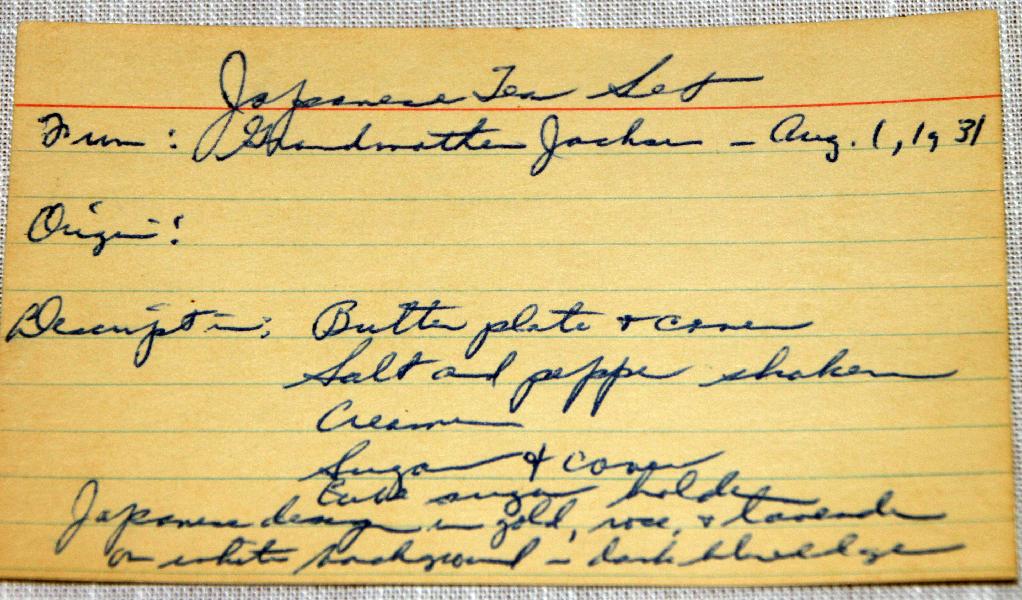 Japanese Tea Set
From: Grandmother Jackson - Aug. 1, 1931
Origin:
Description: Butter plate & cover
Salt and pepper shakers
Creamer
Sugar & cover
Cube sugar holder
Japanese design in gold, rose, & lavender
on white background - dark blue edges